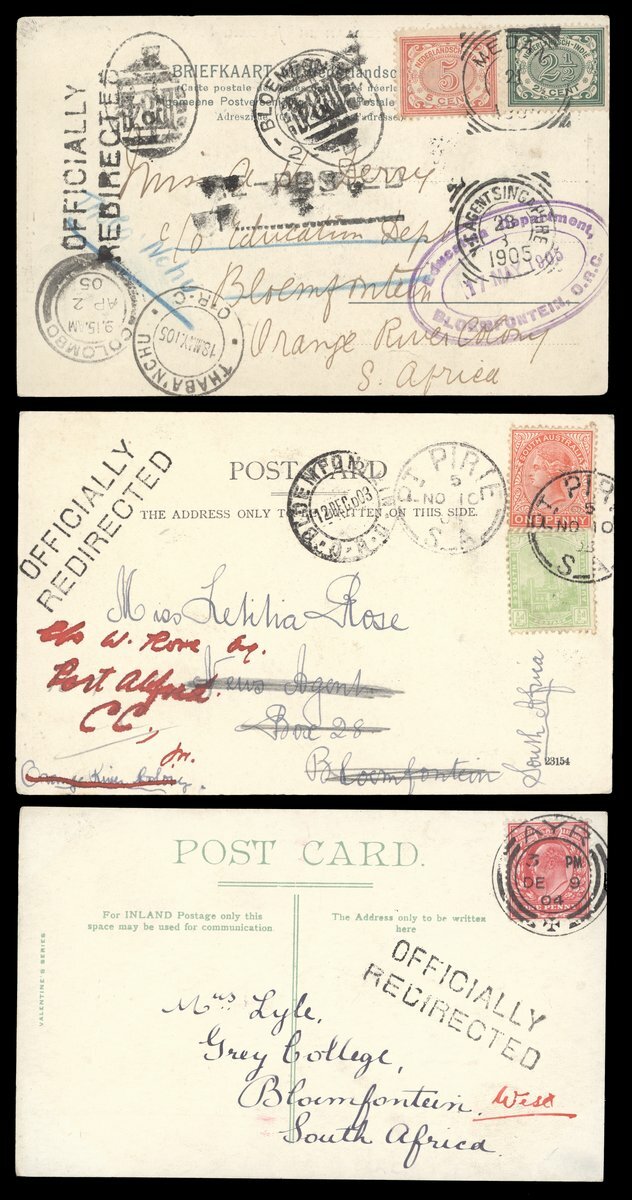 BRIEFKAART
OFFICIALLY
REDIRECTED
BLOEMFONTEIN
NEDERLANDSCH-INDIË
5
CENT
NEDERLANDSCH-INDIË
2½
CENT
MEDAN
21
Miss A.
c/o Education Dept
Bloemfontein
Orange River Colony
S. Africa
28
3
1905
Education Department,
17 MAY 1905
BLOEMFONTEIN, O.R.C.
COLOMBO
9.15 AM
AP 2
05
THABA'NCHU
18 MY 05
O.R.C.
OFFICIALLY
REDIRECTED
POST CARD
THE ADDRESS ONLY TO BE WRITTEN ON THIS SIDE.
12 DEC 03
PT. PIRIE
5
NO 10
S.A
SOUTH AUSTRALIA
ONE PENNY
PT. PIRIE
5
NO 10
03
S.A
Miss Letitia Rose
c/o W. Rose Esq.
Port Alfred.
CC,
News Agent
Box 28
Bloemfontein
Orange River Colony.
South Africa
23154
POST CARD.
For INLAND Postage only this
space may be used for communication.
The Address only to be written
here
VALENTINE'S SERIES
AYR
3 PM
DE 9
04
ONE PENNY
OFFICIALLY
REDIRECTED
Mrs Lyle,
Grey College,
Bloemfontein. West
South Africa.